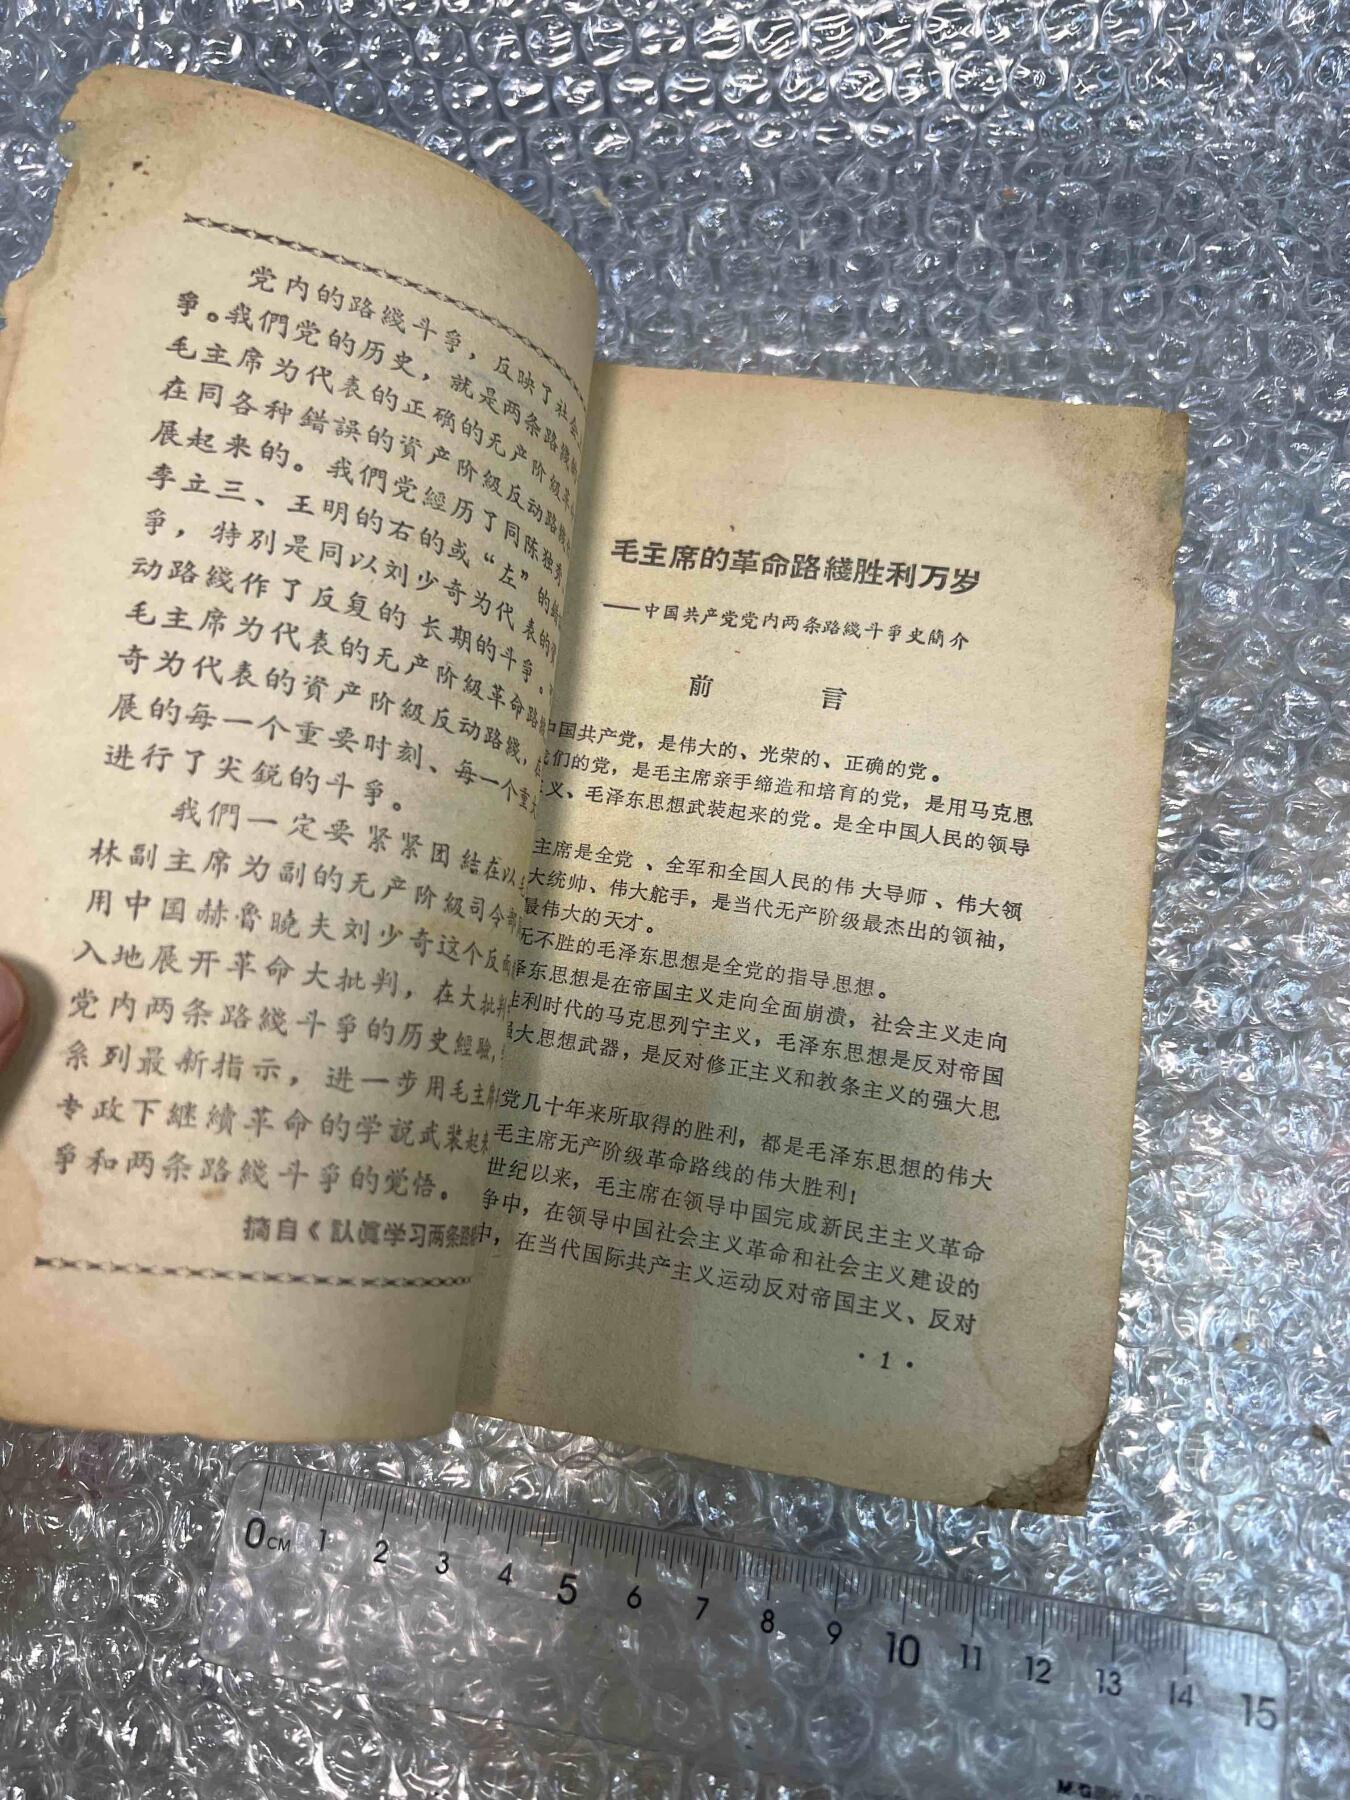 党内的路綫斗爭，反映了社会
爭。我們党的历史，就是两条路綫
毛主席为代表的正确的无产阶級革
在同各种錯誤的資产阶級反动路綫
展起来的。我們党經历了同陈独秀
李立三、王明的右的或“左”的錯
爭，特別是同以刘少奇为代表的資
动路綫作了反复的长期的斗爭。
毛主席为代表的无产阶級革命路
奇为代表的資产阶級反动路綫，在
展的每一个重要时刻、每一个重大
进行了尖鋭的斗爭。
我們一定要紧紧团結在以
林副主席为副的无产阶級司令部
用中国赫魯曉夫刘少奇这个反面
入地展开革命大批判，在大批判
党内两条路綫斗爭的历史經驗，
系列最新指示，进一步用毛主席
专政下継續革命的学説武装起来
爭和两条路綫斗爭的觉悟。
摘自《认眞学习两条路綫
毛主席的革命路綫胜利万岁
——中国共产党党内两条路綫斗爭史簡介
前言
中国共产党，是伟大的、光荣的、正确的党。
我们的党，是毛主席亲手缔造和培育的党，是用马克思
主义、毛泽东思想武装起来的党。是全中国人民的领导
主席是全党、全军和全国人民的伟大导师、伟大领
大统帅、伟大舵手，是当代无产阶级最杰出的领袖，
最伟大的天才。
无不胜的毛泽东思想是全党的指导思想。
泽东思想是在帝国主义走向全面崩溃，社会主义走向
胜利时代的马克思列宁主义，毛泽东思想是反对帝国
强大思想武器，是反对修正主义和教条主义的强大思
党几十年来所取得的胜利，都是毛泽东思想的伟大
毛主席无产阶级革命路线的伟大胜利！
世纪以来，毛主席在领导中国完成新民主主义革命
争中，在领导中国社会主义革命和社会主义建设的
中，在当代国际共产主义运动反对帝国主义、反对
·1·
0CM 1 2 3 4 5 6 7 8 9 10 11 12 13 14 15